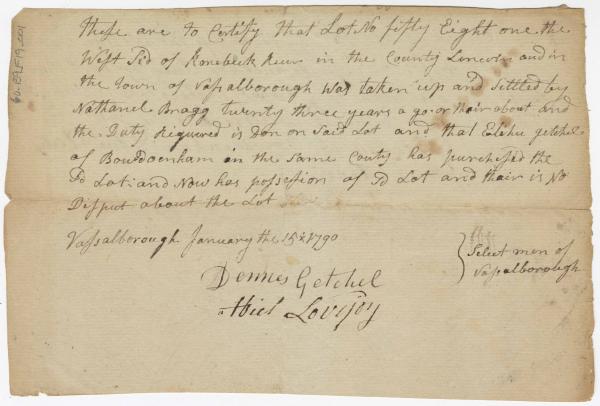 these are to Certify that Lot No fifty Eight one the
West Sid of Kenebeck River in the County Lincoln and in
the town of Vassalborough was taken up and Settled by
Nathanel Bragg twenty three years a go or thair about and
the Duty Required is Don on Said Lot and that Elihu getchel
of Bowdoenham in the Same Couty has purchesed the
Sd Lot: and Now has possession of Sd Lot and thair is No
Disput about the Lot
Vassalborough January the 15th 1790
Dennes Getchel
Abiel Lovejoy
Select men of
Vassalborough